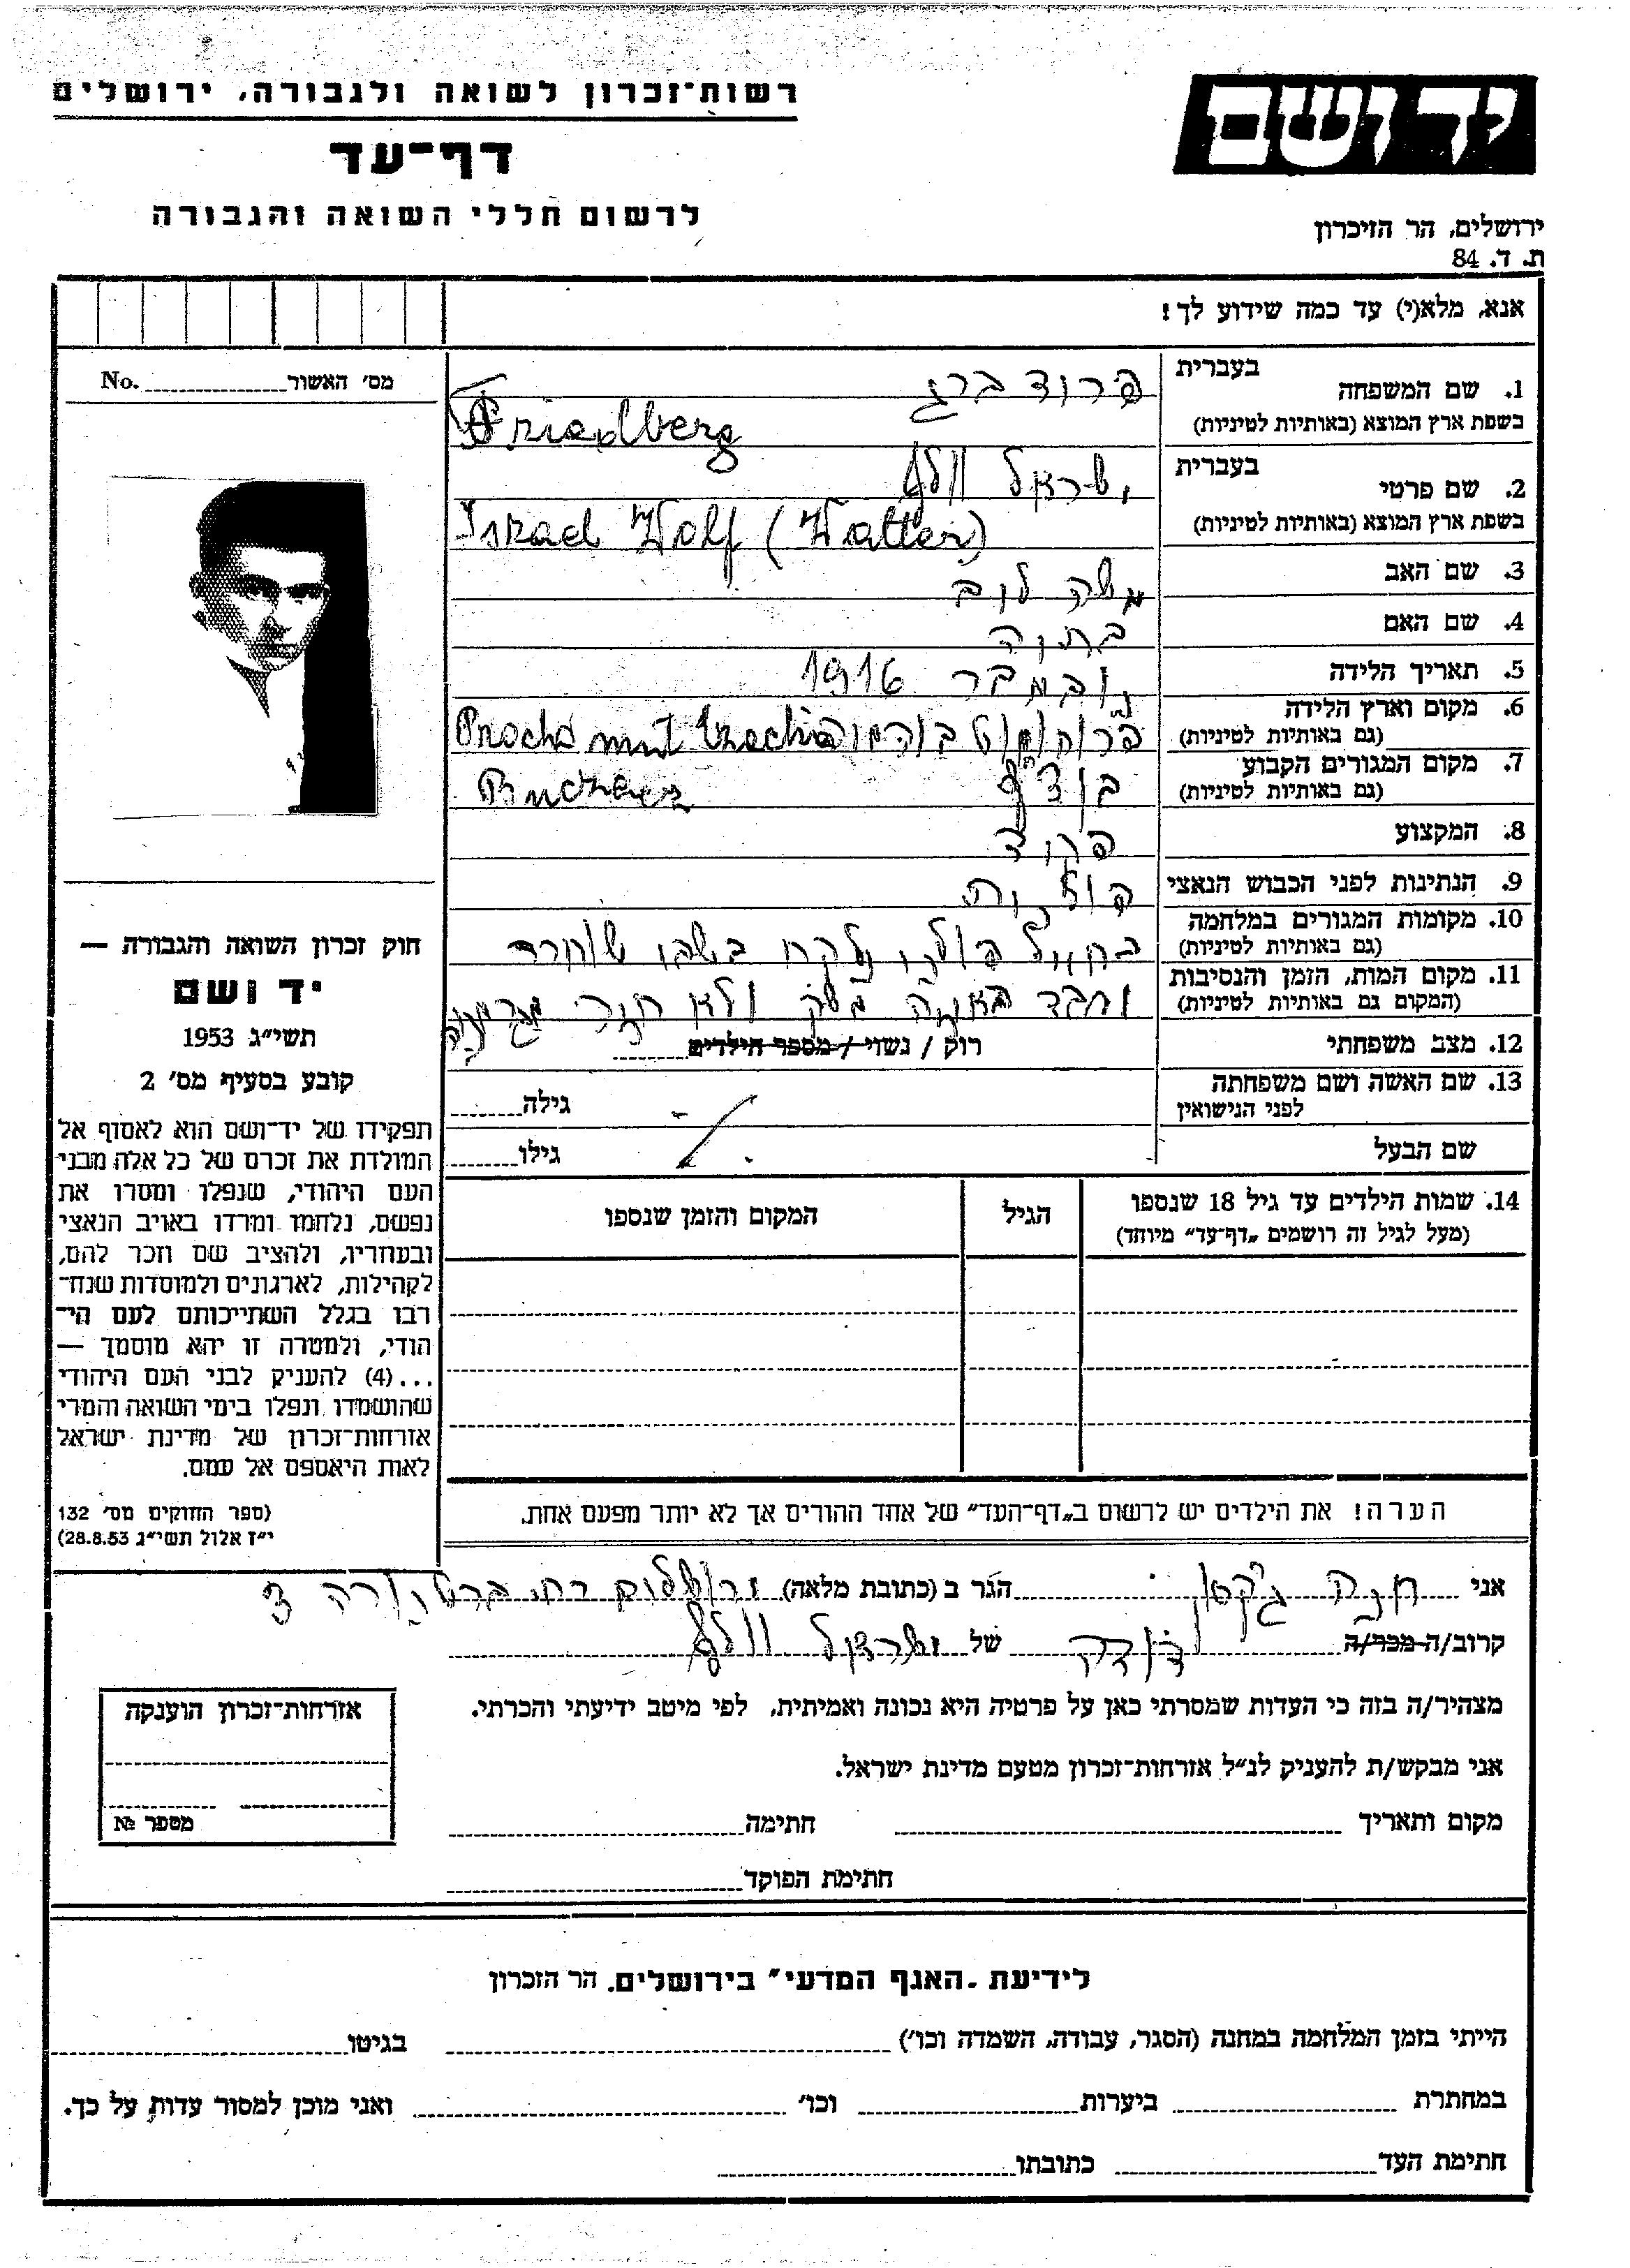 רשות־זכרון לשואה ולגבורה, ירושלים
דף־עד
לרשום חללי השואה והגבורה
יד ושם
ירושלים, הר הזיכרון
ת. ד. 84
אנא, מלא(י) עד כמה שידוע לך!
מס׳ האשור No.
1. שם המשפחה
בעברית
פרידברג
בשפת ארץ המוצא (באותיות לטיניות)
Friedberg
2. שם פרטי
בעברית
ישראל וולף
בשפת ארץ המוצא (באותיות לטיניות)
Israel Wolf (Walter)
3. שם האב
משה לוב
4. שם האם
ברטה
5. תאריך הלידה
נובמבר 1916
6. מקום וארץ הלידה
(גם באותיות לטיניות)
7. מקום המגורים הקבוע
(גם באותיות לטיניות)
8. המקצוע
פקיד
9. הנתינות לפני הכבוש הנאצי
10. מקומות המגורים במלחמה
(גם באותיות לטיניות)
בחיל פולני נלקח בשבי שוחרר
11. מקום המות, הזמן והנסיבות
(המקום גם באותיות לטיניות)
ועבד ולא חזר
12. מצב משפחתי
רוק / נשוי / מספר הילדים
13. שם האשה ושם משפחתה
לפני הנישואין
גילה
שם הבעל
גילו
14. שמות הילדים עד גיל 18 שנספו
(מעל לגיל זה רושמים „דף־עד״ מיוחד)
הגיל
המקום והזמן שנספו
חוק זכרון השואה והגבורה —
יד ושם
תשי״ג 1953
קובע בסעיף מס׳ 2
תפקידו של יד־ושם הוא לאסוף אל
המולדת את זכרם של כל אלה מבני־
העם היהודי, שנפלו ומסרו את
נפשם, נלחמו ומרדו באויב הנאצי
ובעוזריו, ולהציב שם וזכר להם,
לקהילות, לארגונים ולמוסדות שנח־
רבו בגלל השתייכותם לעם הי־
הודי, ולמטרה זו יהא מוסמך —
...(4) להעניק לבני העם היהודי
שהושמדו ונפלו בימי השואה והמרי
אזרחות־זכרון של מדינת ישראל
לאות היאספם אל עמם.
(ספר החוקים מס׳ 132
י״ז אלול תשי״ג 28.8.53)
הערה! את הילדים יש לרשום ב„דף־העד״ של אחד ההורים אך לא יותר מפעם אחת.
אני חנה ג׳קסון הגר ב (כתובת מלאה) ירושלים רח. ברטנורה 3
קרוב/ה מכר/ה דודה של ישראל וולף
מצהיר/ה בזה כי העדות שמסרתי כאן על פרטיה היא נכונה ואמיתית, לפי מיטב ידיעתי והכרתי.
אני מבקש/ת להעניק לנ״ל אזרחות־זכרון מטעם מדינת ישראל.
מקום ותאריך חתימה
חתימת הפוקד
אזרחות־זכרון הוענקה
מספר №
לידיעת „האגף המדעי״ בירושלים, הר הזכרון
הייתי בזמן המלחמה במחנה (הסגר, עבודה, השמדה וכו׳) בגיטו
במחתרת ביערות וכו׳ ואני מוכן למסור עדות על כך.
חתימת העד כתובתו